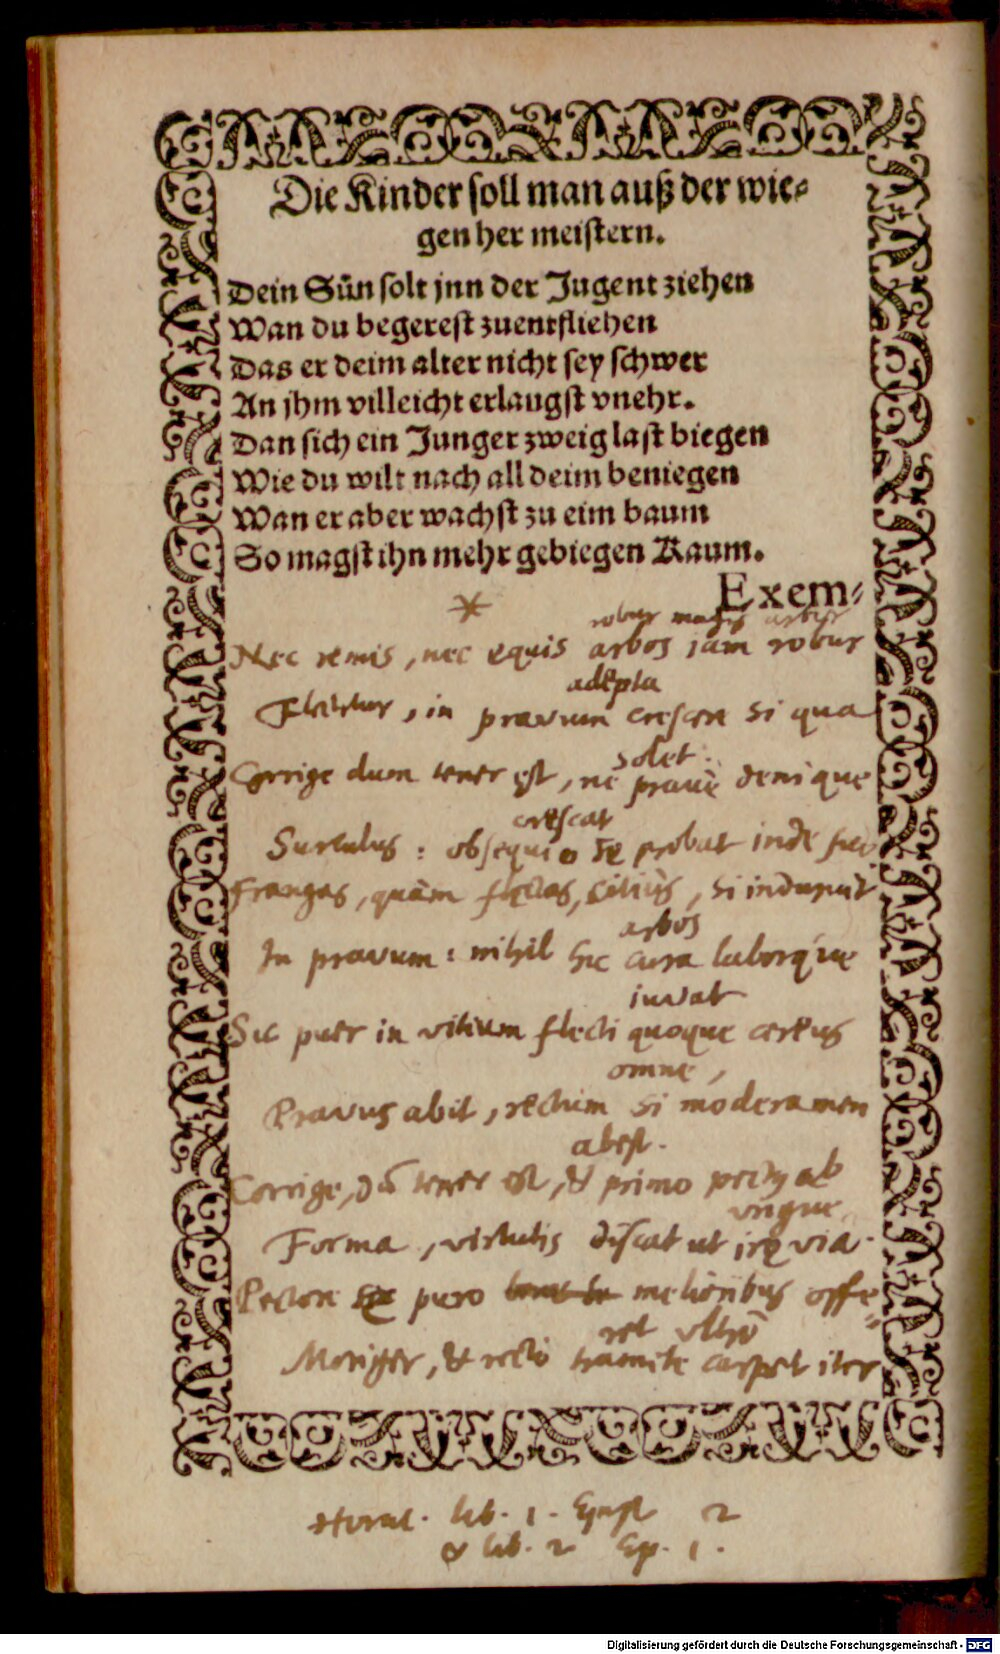 Die Kinder ſoll man auß der wie⸗
gen her meiſtern.
Dein Sün ſolt jnn der Jugent ziehen
Wan du begereſt zuentfliehen
Das er deim alter nicht ſey ſchwer
An jhm villeicht erlangſt vnehr.
Dan ſich ein Junger zweig laſt biegen
Wie du wilt nach all deim beniegen
Wan er aber wachſt zu eim baum
So magſt ihn mehr gebiegen Kaum.
Exem⸗
*
robur magis arbor
Nec remis, nec equis arbos jam robur
adepta
Flectitur, in pravum creſcere si qua
solet.
Corrige dum tener eſt, ne pravè deniquе
creſcat
Surculus: obſequio se probat inde suo
Frangas, quàm flectas, citiùs, si induruit
arbos
In pravum: nihil hic cura laborq́ue
iuvat
Sic puer in vitium flecti quoque cereus
omne,
Pravus abit, rectum si moderamen
abeſt.
Corrige, dũ tener eſt, & primo pectꝯ ab
ungue
Forma, virtutis diſcat ut ire via.
Pectore se puro melioribus offe⸗
ret ultrò
Moriger, & recto tramite carpet iter
Horat. lib. 1. Epiſt 2
& lib. 2 Ep. 1.
Digitalisierung gefördert durch die Deutsche Forschungsgemeinschaft - DFG